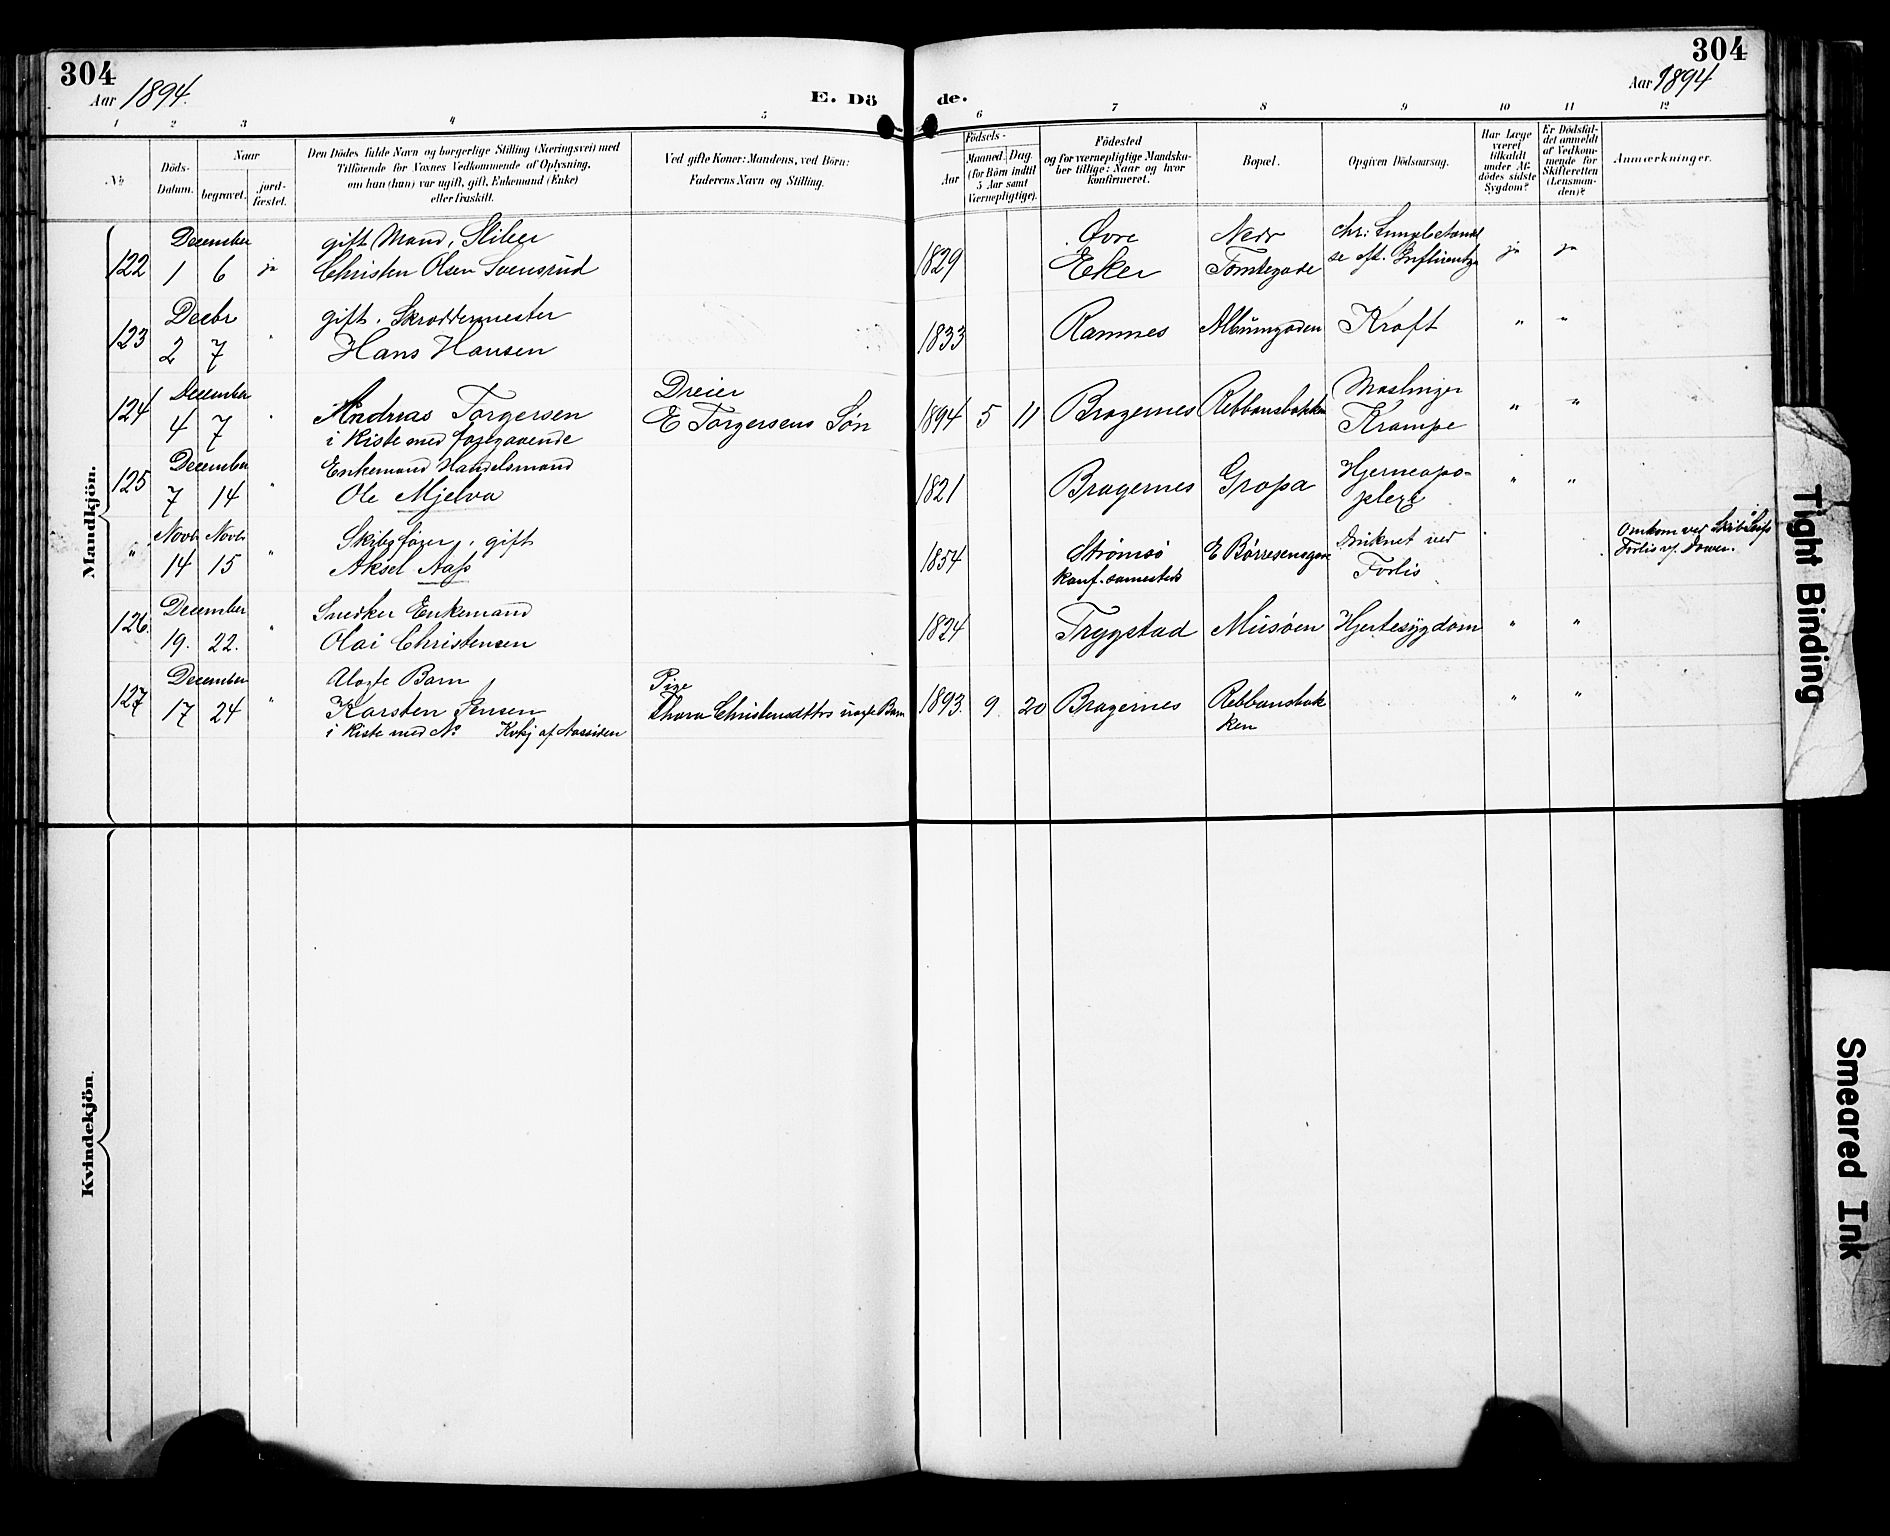 304
Aar 1894.
E. Dö
de.
304
Aar 1894
1 2 3 4 5 6 7 8 9 10 11 12
No
Döds-
Datum.
Naar
begravet.
jord-
fæstet.
Den Dödes fulde Navn og borgerlige Stilling (Næringsvei) med
Tilföiende for Voxnes Vedkommende af Oplysning,
om han (hun) var ugift, gift, Enkemand (Enke)
eller fraskilt.
Ved gifte Koner: Mandens, ved Börn:
Faderens Navn og Stilling.
Födsels-
Aar
Maaned. Dag.
(for Börn indtil
5 Aar samt
Værnepligtige).
Födested
og for værnepligtige Mandska-
ber tillige: Naar og hvor
konfirmeret.
Bopæl.
Opgiven Dödsaarsag.
Har Læge
været
tilkaldt
under Af-
dödes sidste
Sygdom?
Er Dödsfal-
det anmeldt
af Vedkom-
mende for
Skifteretten
(Lensman-
den)?
Anmærkninger.
Mandkjön.
122
December
1 6 ja
gift Mand, Sliber
Christen Olsen Svensrud
1829
Øvre
Eker
Nedr
Tomtegade
chr: Lungebetændel
se eft. Influentza
ja ja
123
Decbr
2 7 "
gift. Skræddermester
Hans Hansen
1833
Ramnes
Albumgaden
Kræft
" "
124
December
4 7 "
Andreas Torgersen
i Kiste med foregaaende
Dreier
E Torgersens Søn
1894 5 11
Bragernes
Rebbansbakken
Maslinger
Krampe
" "
125
December
7 14 "
Enkemand Handelsmand
Ole Mjelva
1821
Bragernes
Gropa
Hjerneapo-
plexi
" "
"
Novb. Novb.
14 15 "
Skibsfører, gift
Aksel Aass
1854
Strømsø
konf. samesteds
E Børresensgade
Druknet ved
Forlis
Omkom ved Skib
Forlis v/ Dover.
126.
December
19. 22. "
Snedker Enkemand
Olai Christensen
1824
Trygstad
Miisøen
Hjertesygdom
" "
127
December
17 24 "
Uægte Barn
Karsten Jensen
i Kiste med No
Pige
Thora Christensdttrs uægte Barn
1893. 9. 20
Bragernes
Rebbansbak
ken
" "
Kvindekjön.
Tight Binding
Smeared Ink